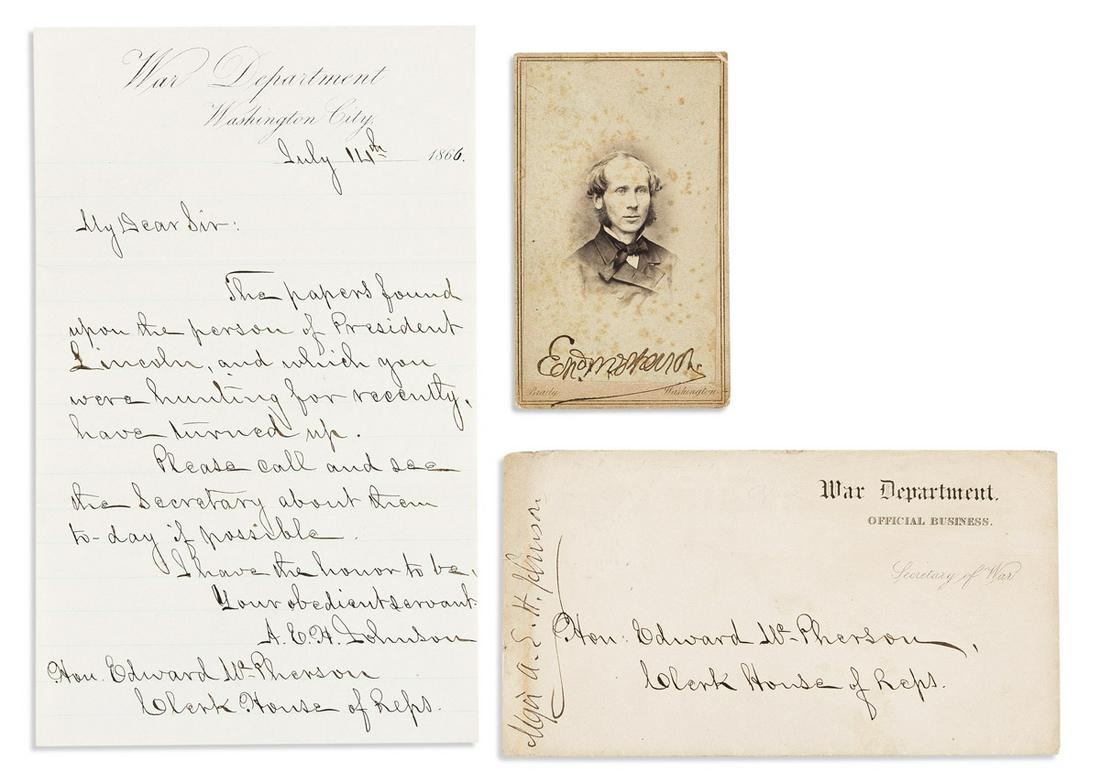 War Department
Washington City,
July 14th 1866.
My Dear Sir:
The papers found
upon the person of President
Lincoln, and which you
were hunting for recently,
have turned up.
Please call and see
the Secretary about them
to-day if possible.
I have the honor to be,
Your obedient servant
A. E. H. Johnson
Hon. Edward McPherson
Clerk House of Reps.
Edwd McPherson
Brady Washington
War Department.
OFFICIAL BUSINESS.
Secretary of War
Hon: Edward McPherson,
Clerk House of Reps.
Major A. E. H. Johnson